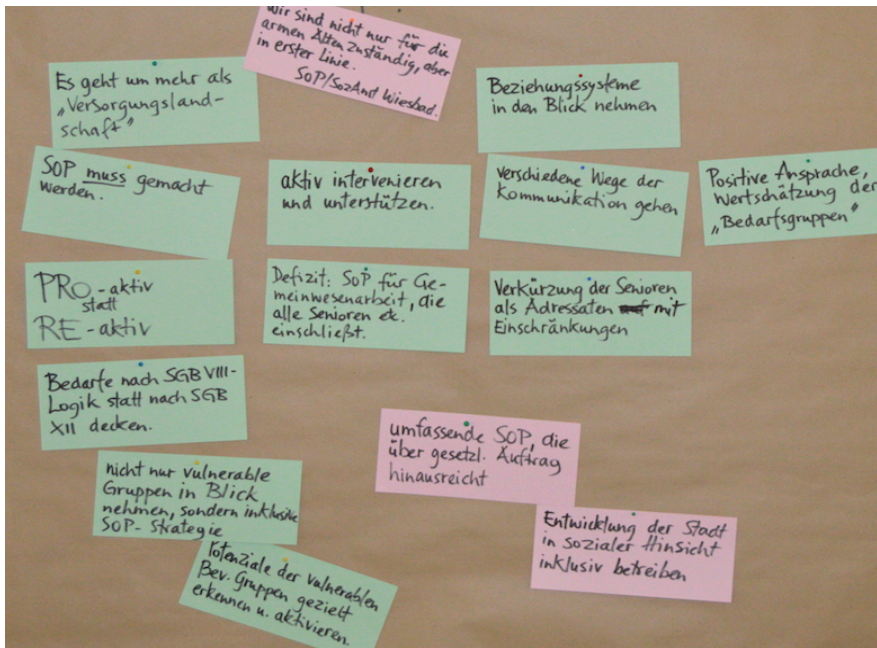 wir sind nicht nur für die
armen Alten zuständig, aber
in erster Linie.
SoP/SozAmt Wiesbad.
Es geht um mehr als
„Versorgungsland-
schaft"
Beziehungssysteme
in den Blick nehmen
SoP muss gemacht
werden.
aktiv intervenieren
und unterstützen.
verschiedene Wege der
Kommunikation gehen
Positive Ansprache,
Wertschätzung der
„Bedarfsgruppen"
PRO-aktiv
statt
RE-aktiv
Defizit: SoP für Ge-
meinwesenarbeit, die
alle Senioren etc.
einschließt.
Verkürzung der Senioren
als Adressaten mit
Einschränkungen
Bedarfe nach SGB VIII-
Logik statt nach SGB
XII decken.
umfassende SoP, die
über gesetzl. Auftrag
hinausreicht
nicht nur vulnerable
Gruppen in Blick
nehmen, sondern inklusive
SoP-Strategie
Entwicklung der Stadt
in sozialer Hinsicht
inklusiv betreiben
Potenziale der vulnerablen
Bev. Gruppen gezielt
erkennen u. aktivieren.